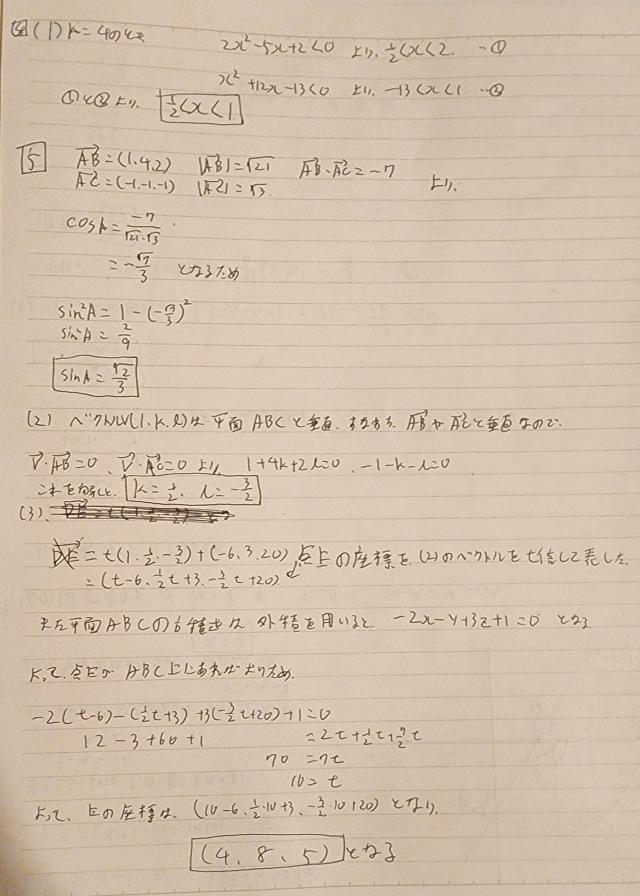 4 (1) k=4のとき 2x²-5x+2<0 より、 1/2<x<2. …①
x²+12x-13<0 より、 -13<x<1 …②
①と②より、 1/2<x<1
5 AB→=(1,4,2) |AB→|=√21 AB→・AC→=-7
AC→=(-1,-1,-1) |AC→|=√3 より、
cosA=-7/√21・√3
=-√7/3 となるため
sin²A=1-(-√7/3)²
sin²A=2/9
sinA=√2/3
(2) ベクトルV(1,k,l)は平面ABCと垂直、すなわち、AB→やAC→と垂直なので、
V→・AB→=0、V→・AC→=0 より 1+4k+2l=0、-1-k-l=0
これを解くと、k=1/2、l=-3/2
(3).
=t(1,1/2,-3/2)+(-6,3,20) 点上の座標を、(2)のベクトルをt倍して表した。
=(t-6,1/2t+3,-3/2t+20)
また平面ABCの方程式は外積を用いると -2x-y+3z+1=0 となる
よって、点EがABC上にあればよいため、
-2(t-6)-(1/2t+3)+3(-3/2t+20)+1=0
12-3+60+1 =2t+1/2t+9/2t
70 =7t
10=t
よって、Eの座標は、(10-6,1/2・10+3,-3/2・10+20) となり、
(4、8、5)となる